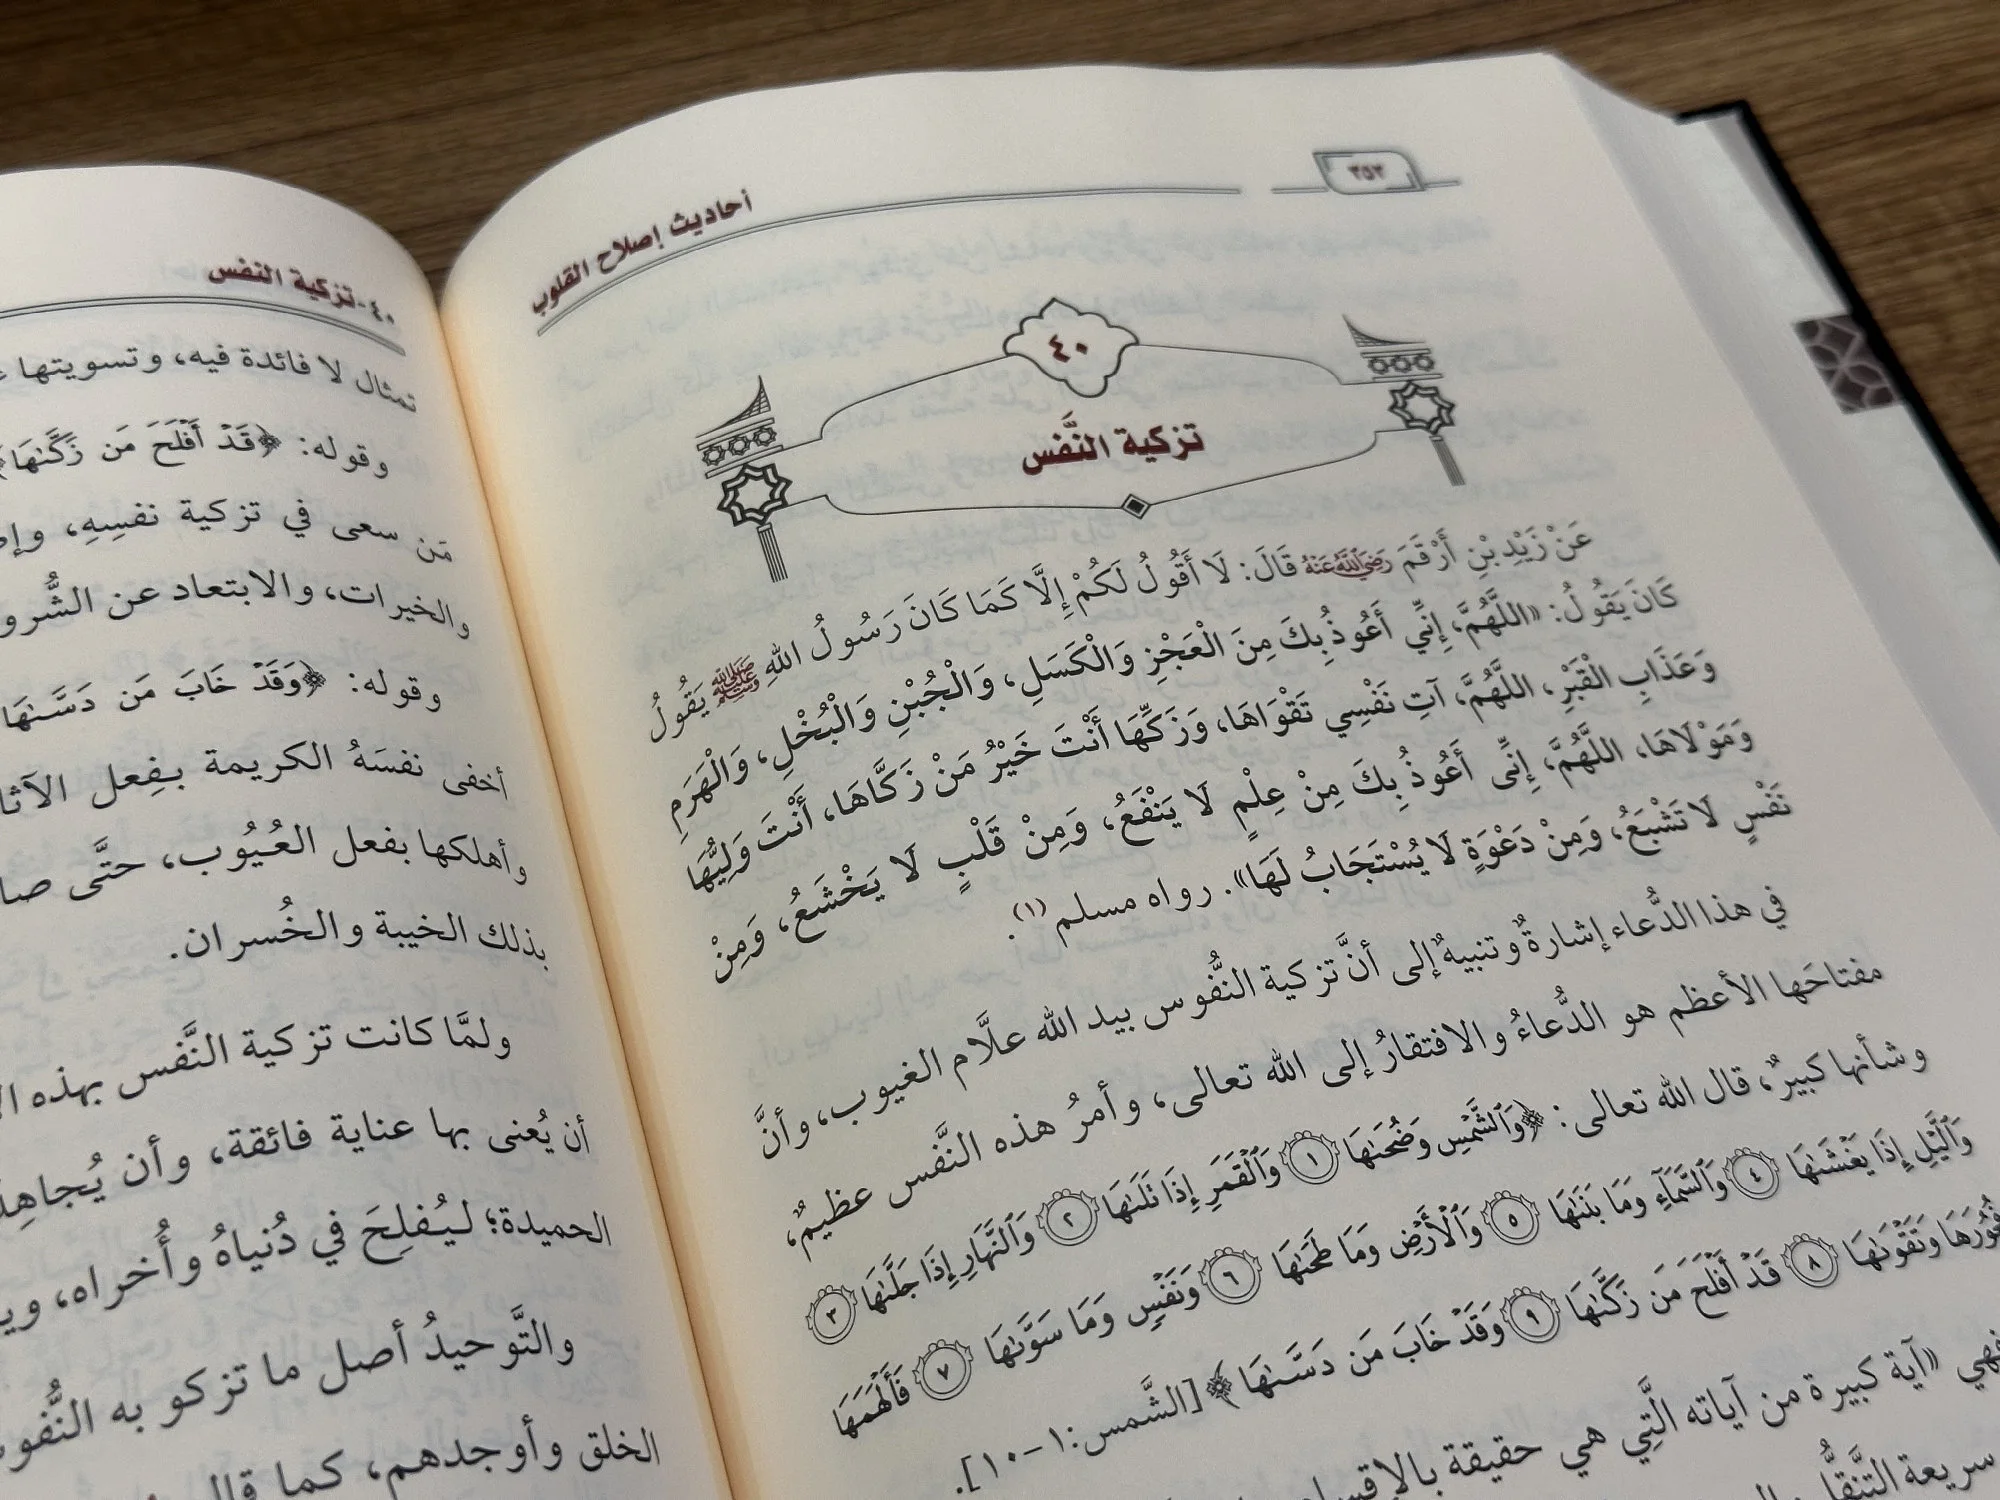 ٣٥٣
أحاديث إصلاح القلوب
٤٠
تزكية النَّفس
عَنْ زَيْدِ بْنِ أَرْقَمَ رَضِيَ اللَّهُ عَنْهُ قَالَ: لَا أَقُولُ لَكُمْ إِلَّا كَمَا كَانَ رَسُولُ اللهِ صَلَّى اللَّهُ عَلَيْهِ وَسَلَّمَ يَقُولُ
كَانَ يَقُولُ: «اللَّهُمَّ، إِنِّي أَعُوذُ بِكَ مِنَ الْعَجْزِ وَالْكَسَلِ، وَالْجُبْنِ وَالْبُخْلِ، وَالْهَرَمِ
وَعَذَابِ الْقَبْرِ، اللَّهُمَّ، آتِ نَفْسِي تَقْوَاهَا، وَزَكِّهَا أَنْتَ خَيْرُ مَنْ زَكَّاهَا، أَنْتَ وَلِيُّهَا
وَمَوْلَاهَا، اللَّهُمَّ، إِنِّى أَعُوذُ بِكَ مِنْ عِلْمٍ لَا يَنْفَعُ، وَمِنْ قَلْبٍ لَا يَخْشَعُ، وَمِنْ
نَفْسٍ لَا تَشْبَعُ، وَمِنْ دَعْوَةٍ لَا يُسْتَجَابُ لَهَا». رواه مسلم (١).
في هذا الدُّعاء إشارةٌ وتنبيهٌ إلى أنَّ تزكية النُّفوس بيد الله علَّام الغيوب، وأنَّ
مفتاحَها الأعظم هو الدُّعاءُ والافتقارُ إلى الله تعالى، وأمرُ هذه النَّفس عظيمٌ،
وشأنها كبيرٌ، قال الله تعالى: ﴿وَٱلشَّمْسِ وَضُحَىٰهَا ۝١ وَٱلْقَمَرِ إِذَا تَلَىٰهَا ۝٢ وَٱلنَّهَارِ إِذَا جَلَّىٰهَا ۝٣
وَٱلَّيْلِ إِذَا يَغْشَىٰهَا ۝٤ وَٱلسَّمَآءِ وَمَا بَنَىٰهَا ۝٥ وَٱلْأَرْضِ وَمَا طَحَىٰهَا ۝٦ وَنَفْسٍ وَمَا سَوَّىٰهَا ۝٧ فَأَلْهَمَهَا
فُجُورَهَا وَتَقْوَىٰهَا ۝٨ قَدْ أَفْلَحَ مَن زَكَّىٰهَا ۝٩ وَقَدْ خَابَ مَن دَسَّىٰهَا﴾ [الشَّمس: ١-١٠].
فهي «آية كبيرة من آياته الَّتِي هي حقيقة
سريعة التَّنقُّل
٤٠-تزكية النفس
تمثال لا فائدة فيه، وتسويتها
وقوله: ﴿قَدْ أَفْلَحَ مَن زَكَّىٰهَا﴾
مَن سعى في تزكية نفسِهِ،
والخيرات، والابتعاد عن
وقوله: ﴿وَقَدْ خَابَ مَن دَسَّىٰهَا
أخفى نفسَهُ الكريمة بفِعل
وأهلكها بفعل العُيُوب، حتَّى
بذلك الخيبة والخُسران.
ولمَّا كانت تزكية النَّفس بهذه
أن يُعنى بها عناية فائقة، وأن
الحميدة؛ ليُفلِحَ في دُنياهُ وأُخراه،
والتَّوحيدُ أصل ما تزكو به
الخلق وأوجدهم، كما